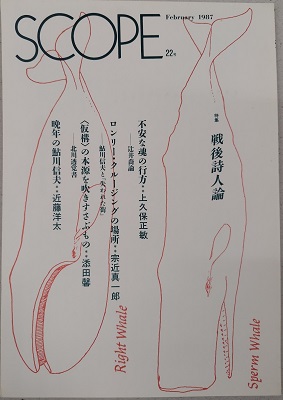 SCOPE
February 1987
22号
特集
戦後詩人論
不安な魂の行方‥上久保正敏
──辻井喬論
ロンリー・クルージングの場所‥宗近真一郎
──鮎川信夫と「失われた街」
〈仮構〉の本源を吹きすさぶもの‥添田馨
──北川透覚書
晩年の鮎川信夫‥近藤洋太
Right Whale
Sperm Whale